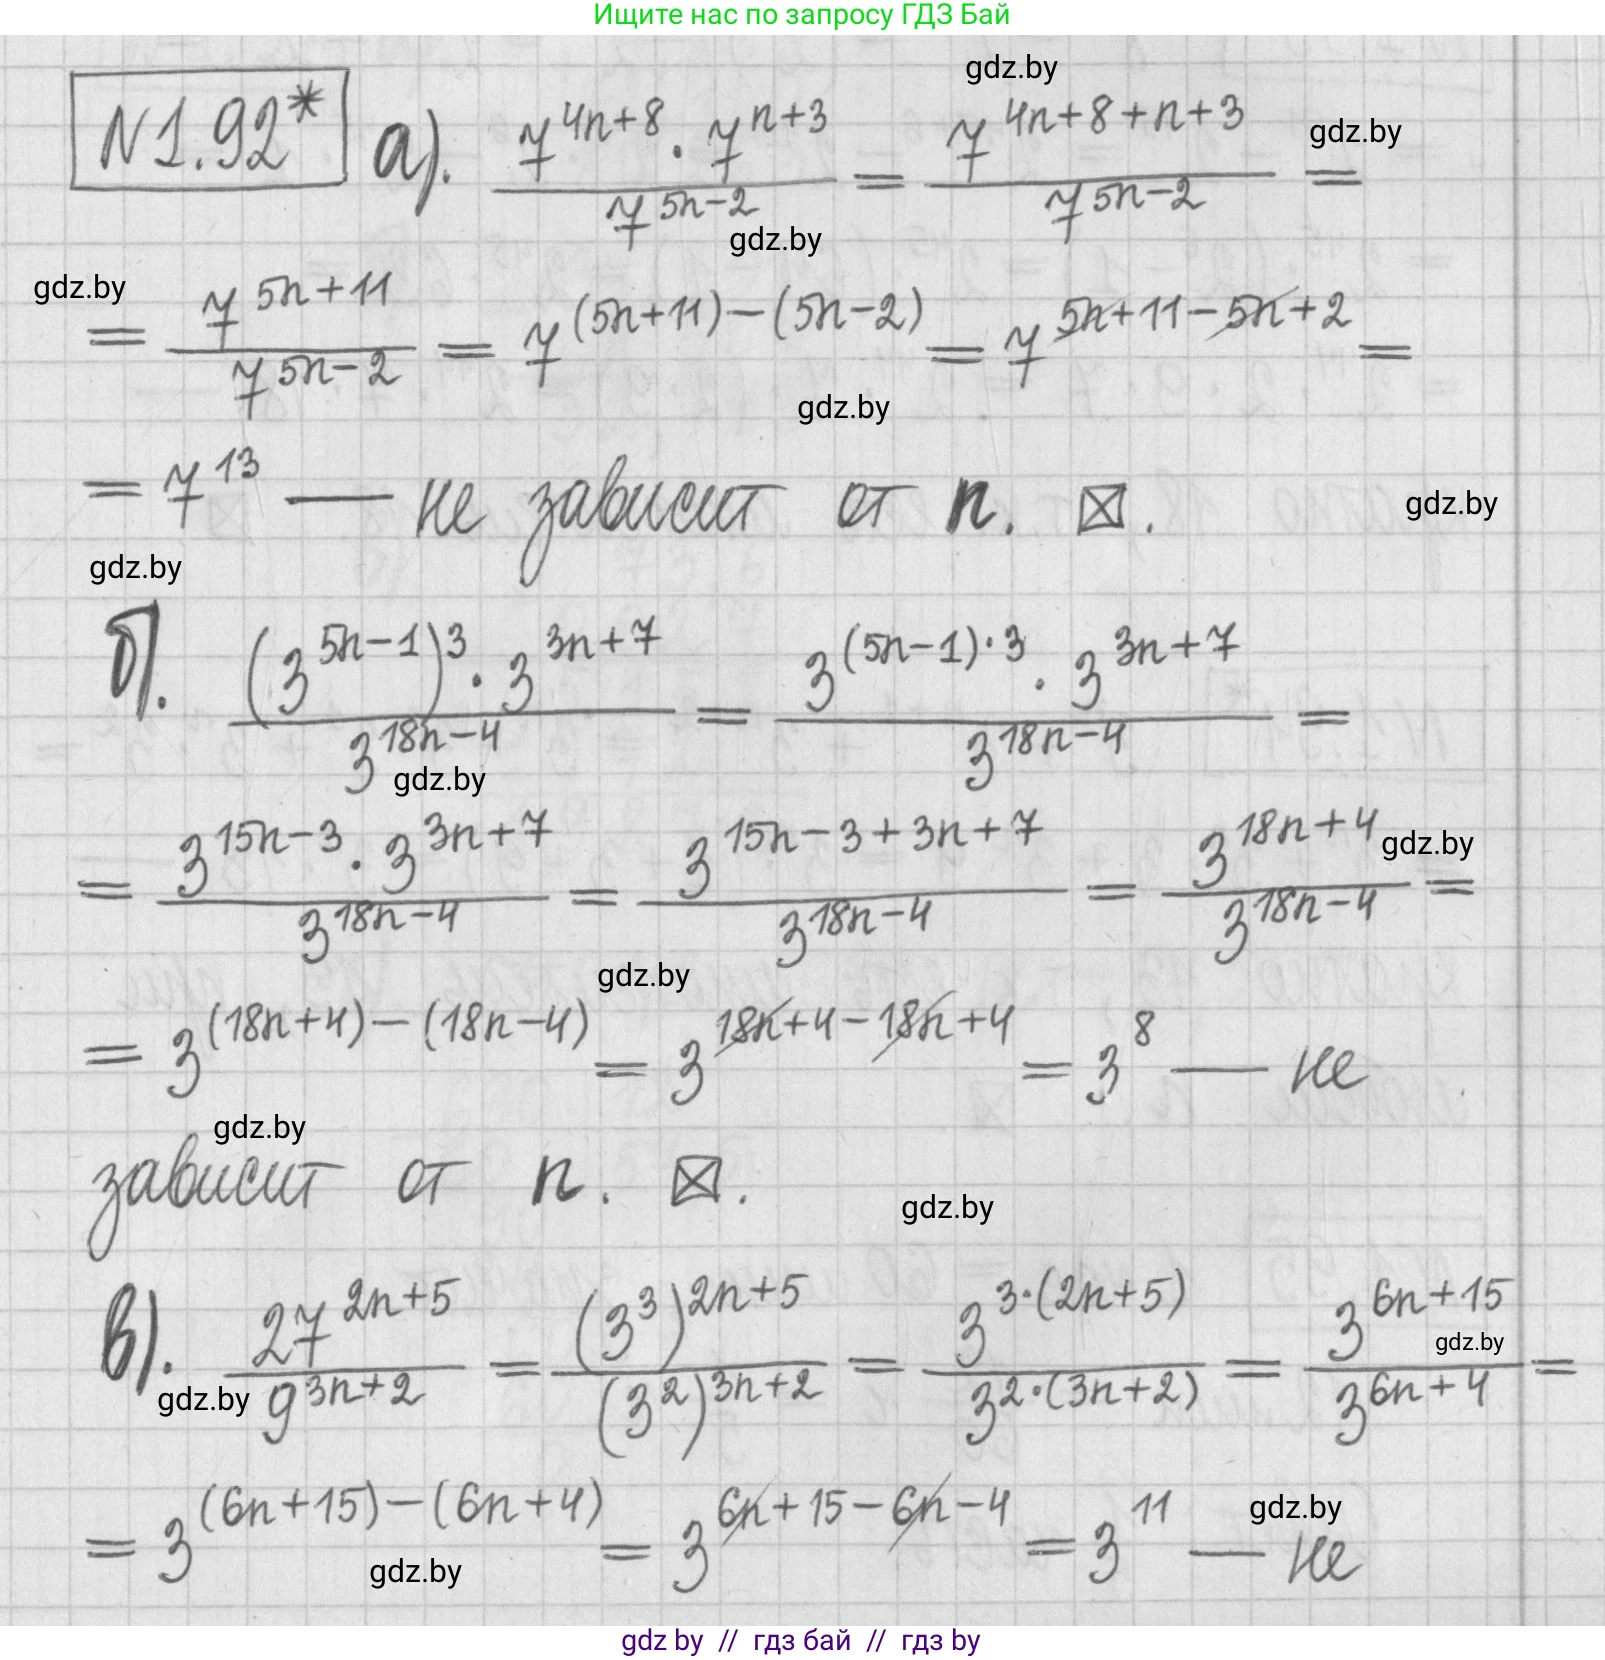 Ищите нас по запросу ГДЗ Бай
gdz.by
N1.92* а). (7^(4n+8) · 7^(n+3))/(7^(5n-2)) = (7^(4n+8+n+3))/(7^(5n-2)) =
gdz.by
gdz.by
gdz.by
= (7^(5n+11))/(7^(5n-2)) = 7^((5n+11)-(5n-2)) = 7^(5n+11-5n+2) =
gdz.by
= 7^13 — не зависит от n. ☒.
gdz.by
gdz.by
б). ((3^(5n-1))^3 · 3^(3n+7))/(3^(18n-4)) = (3^((5n-1)·3) · 3^(3n+7))/(3^(18n-4)) =
gdz.by
= (3^(15n-3) · 3^(3n+7))/(3^(18n-4)) = (3^(15n-3+3n+7))/(3^(18n-4)) = (3^(18n+4))/(3^(18n-4)) =
gdz.by
gdz.by
= 3^((18n+4)-(18n-4)) = 3^(18n+4-18n+4) = 3^8 — не
gdz.by
зависит от n. ☒.
gdz.by
в). (27^(2n+5))/(9^(3n+2)) = ((3^3)^(2n+5))/((3^2)^(3n+2)) = (3^(3·(2n+5)))/(3^(2·(3n+2))) = (3^(6n+15))/(3^(6n+4)) =
gdz.by
gdz.by
= 3^((6n+15)-(6n+4)) = 3^(6n+15-6n-4) = 3^11 — не
gdz.by
gdz.by
gdz by // гдз бай // гдз by